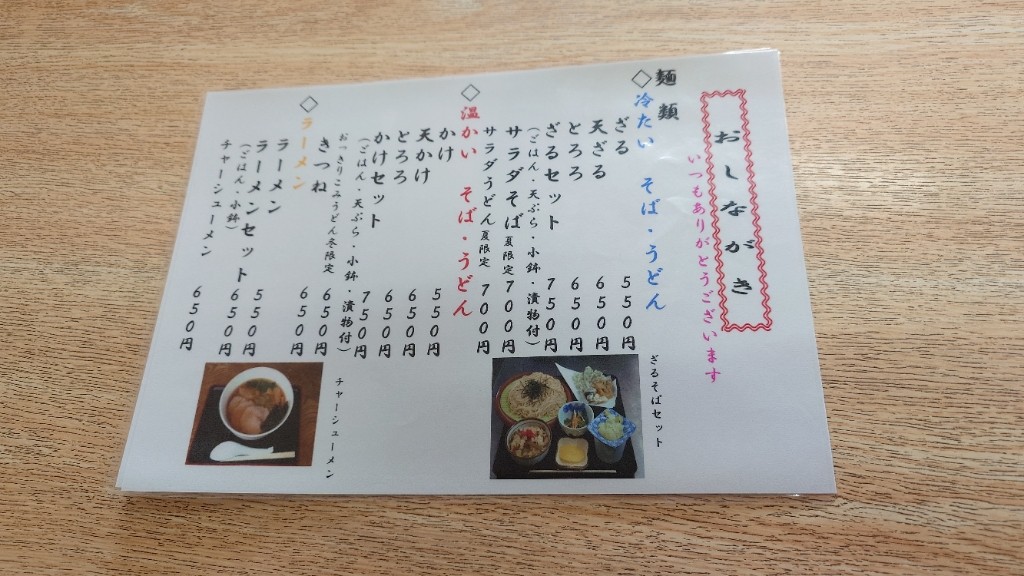 おしながき
いつもありがとうございます
麺類
◇冷たい そば・うどん
ざる 550円
天ざる 650円
とろろ 650円
ざるセット 750円
(ごはん・天ぷら・小鉢・漬物付)
サラダそば 夏限定 700円
サラダうどん 夏限定 700円
◇温かい そば・うどん
かけ 550円
天かけ 650円
とろろ 650円
かけセット 750円
(ごはん・天ぷら・小鉢・漬物付)
おっきりこみうどん 冬限定 650円
きつね 650円
◇ラーメン
ラーメン 550円
ラーメンセット 650円
(ごはん・小鉢)
チャーシューメン 650円
ざるそばセット
チャーシューメン